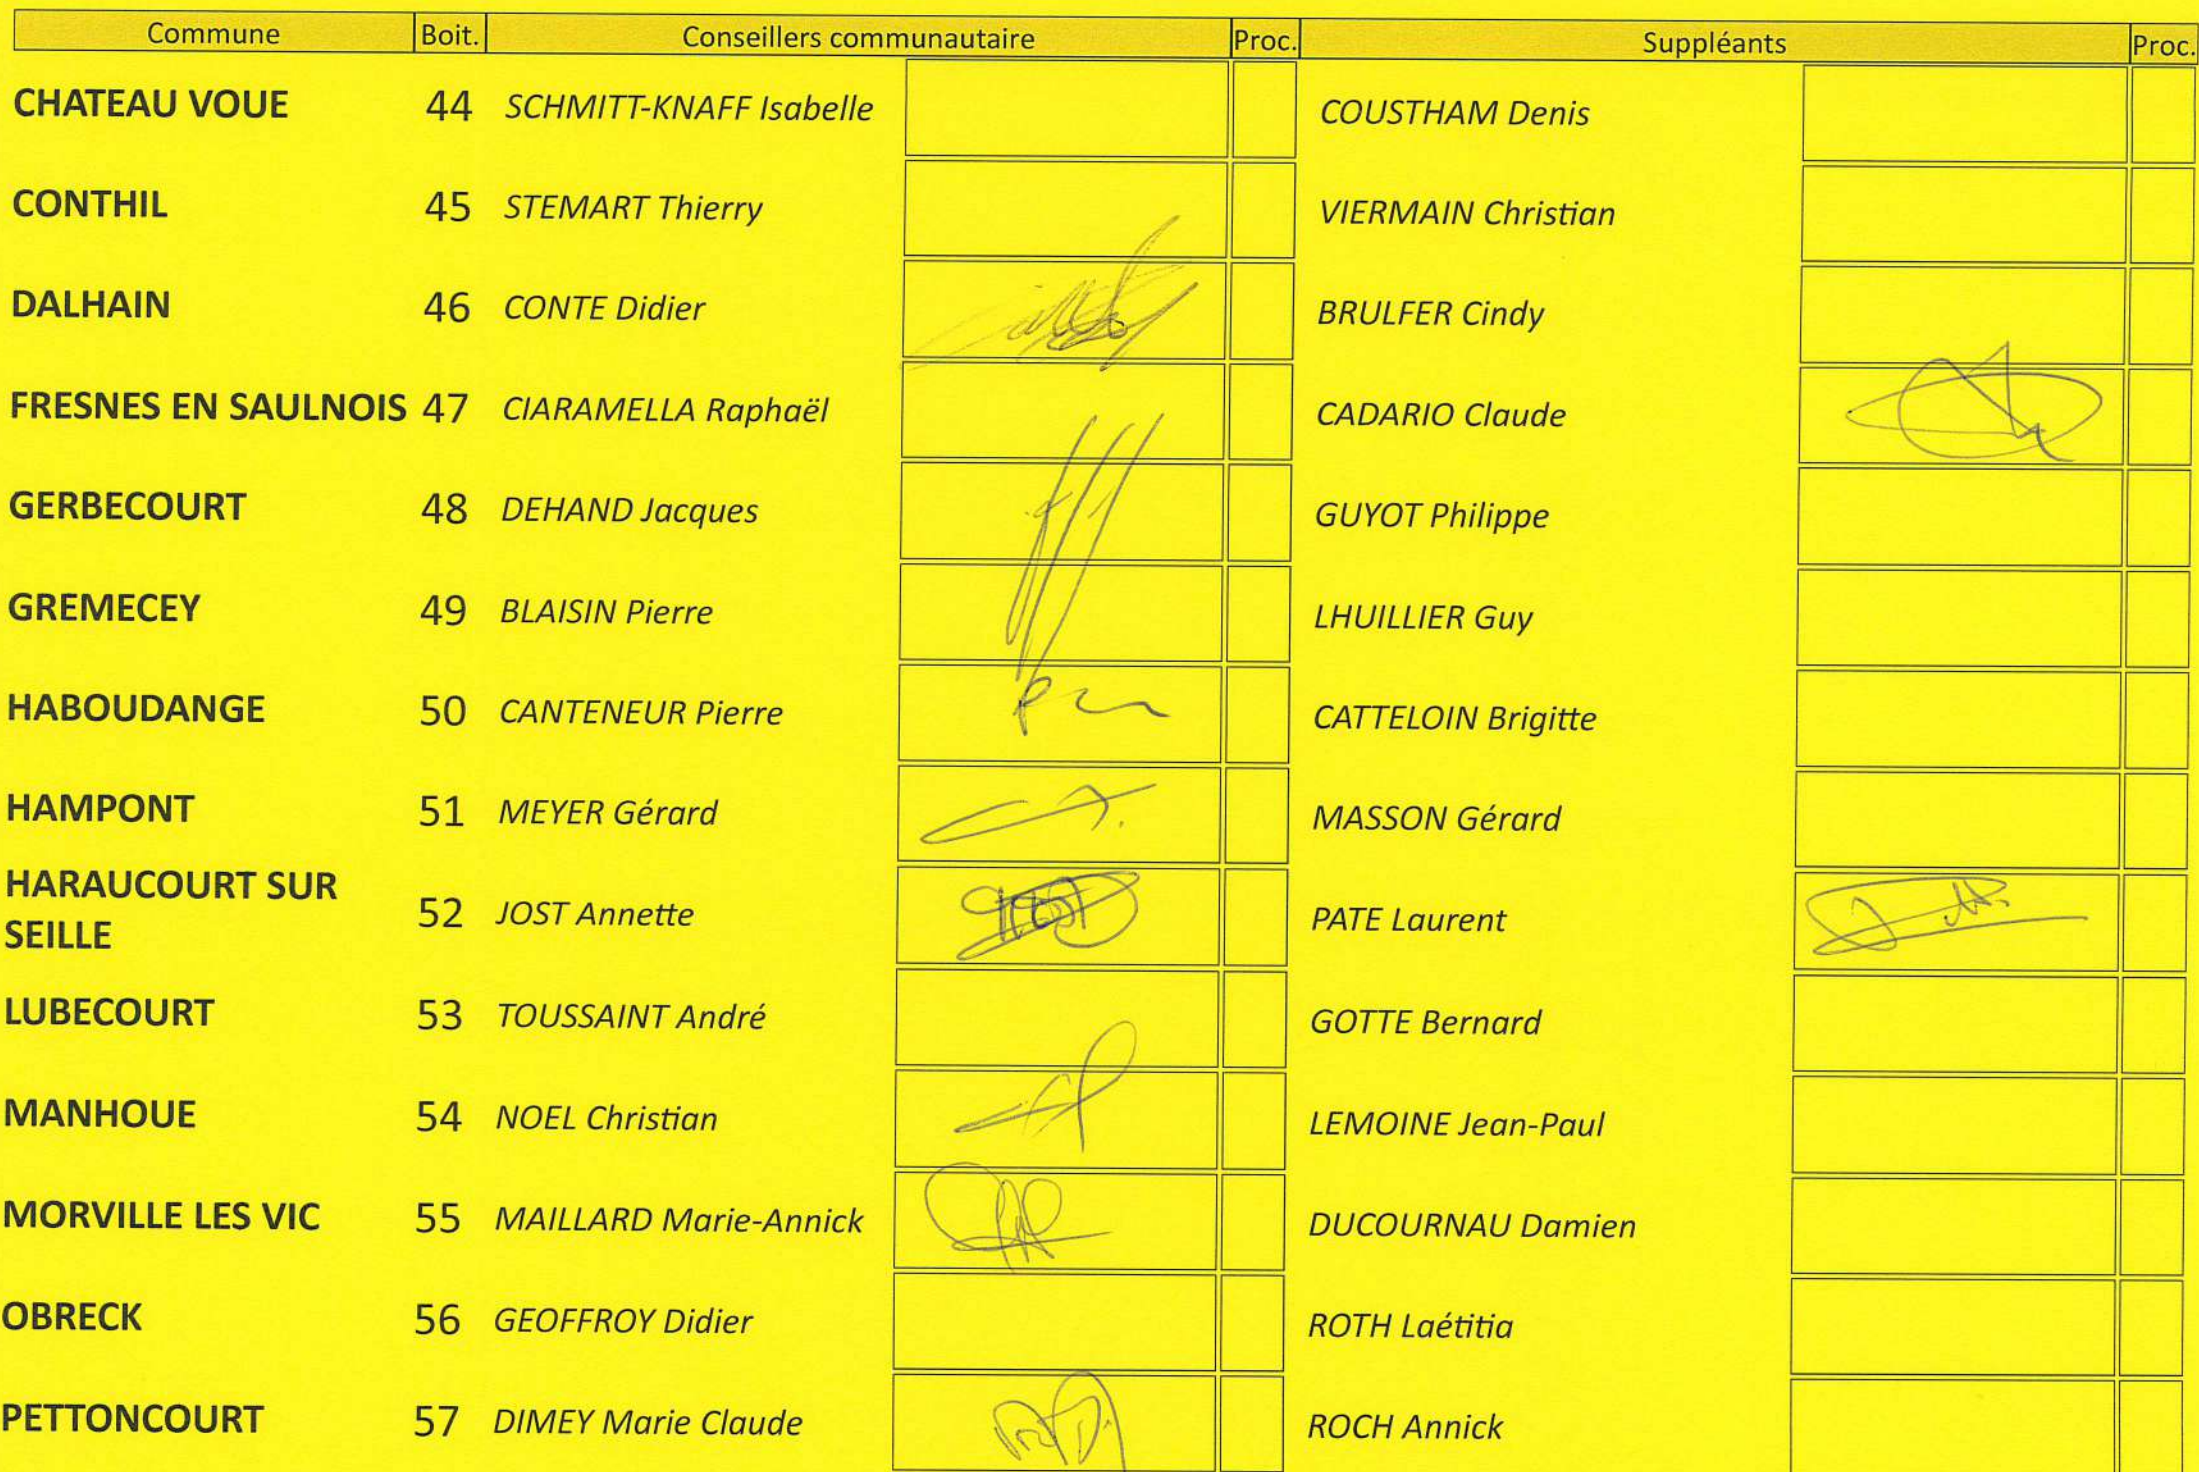 Commune Boit. Conseillers communautaire Proc. Suppléants Proc.
CHATEAU VOUE 44 SCHMITT-KNAFF Isabelle COUSTHAM Denis
CONTHIL 45 STEMART Thierry VIERMAIN Christian
DALHAIN 46 CONTE Didier BRULFER Cindy
FRESNES EN SAULNOIS 47 CIARAMELLA Raphaël CADARIO Claude
GERBECOURT 48 DEHAND Jacques GUYOT Philippe
GREMECEY 49 BLAISIN Pierre LHUILLIER Guy
HABOUDANGE 50 CANTENEUR Pierre CATTELOIN Brigitte
HAMPONT 51 MEYER Gérard MASSON Gérard
HARAUCOURT SUR
SEILLE 52 JOST Annette PATE Laurent
LUBECOURT 53 TOUSSAINT André GOTTE Bernard
MANHOUE 54 NOEL Christian LEMOINE Jean-Paul
MORVILLE LES VIC 55 MAILLARD Marie-Annick DUCOURNAU Damien
OBRECK 56 GEOFFROY Didier ROTH Laétitia
PETTONCOURT 57 DIMEY Marie Claude ROCH Annick